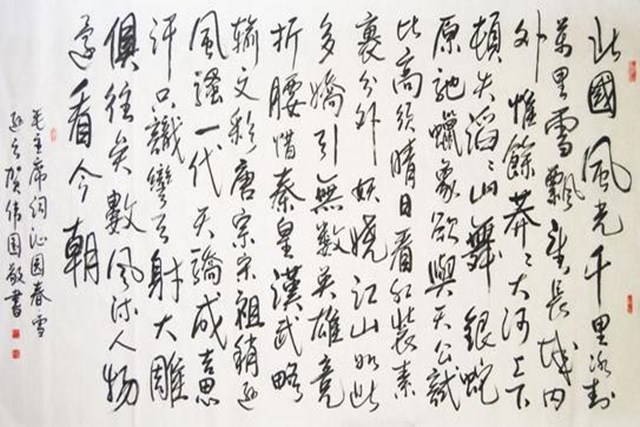 北國風光千里冰封
萬里雪飄望長城内
外惟餘莽々大河上下
頓失滔々山舞銀蛇
原馳蠟象欲與天公試
比高須晴日看紅裝素
裹分外妖嬈江山如此
多嬌引無數英雄竞
折腰惜秦皇漢武略
輸文彩唐宗宋祖稍遜
風騷一代天驕成吉思
汗只識彎弓射大雕
俱往矣數風流人物
還看今朝
毛主席詞沁园春雪
贺伟国敬書